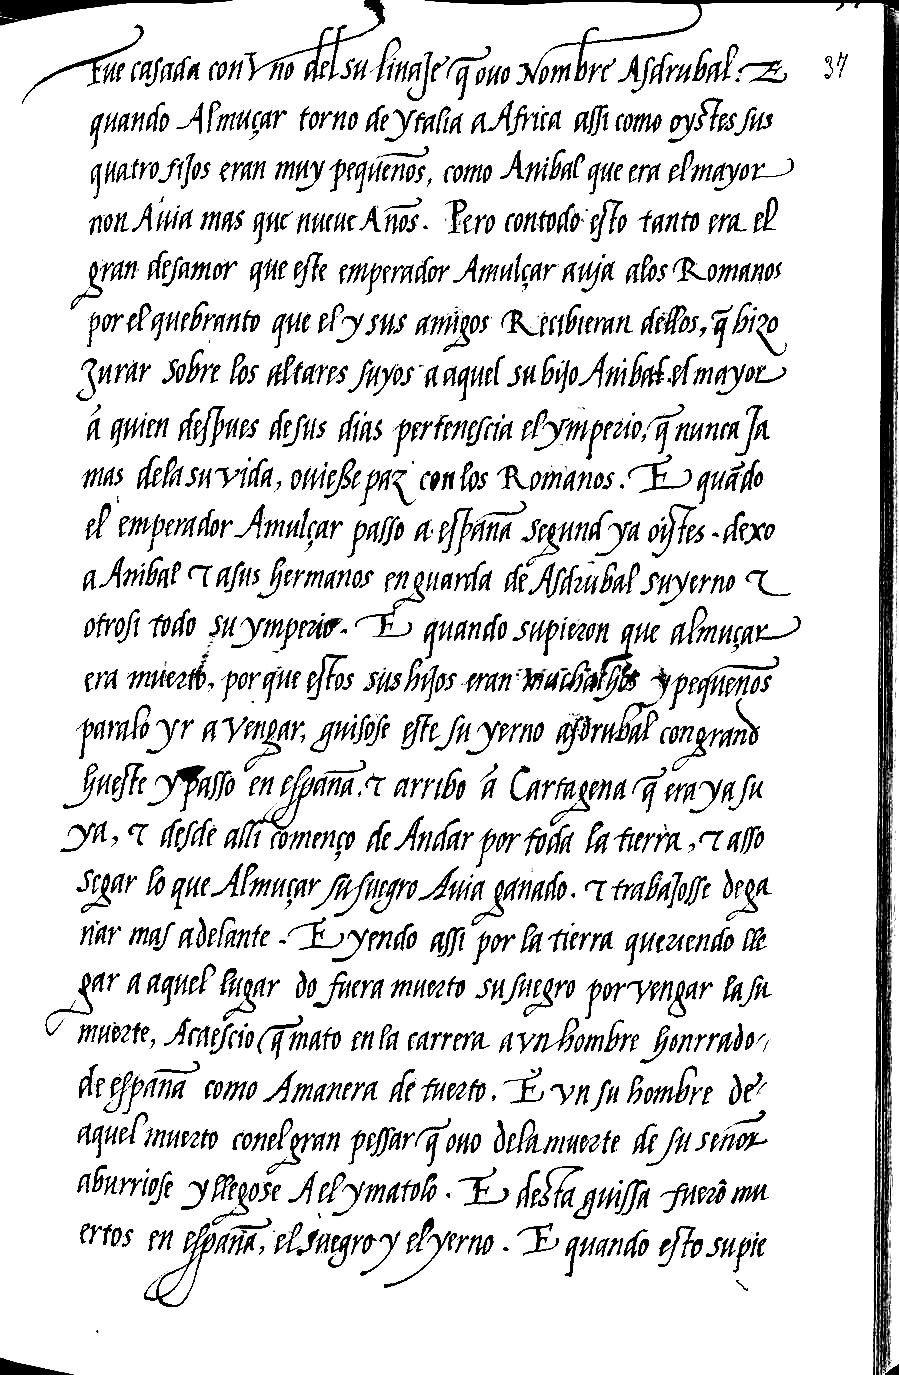 fue casada con Vno del su linaJe q̃ ouo Nombre Asdrubal. E
37
quando Almuçar torno de ytalia a Africa assi como oystes sus
quatro fiJos eran muy pequeños, como Anibal que era el mayor
non Auia mas que nueue Años. Pero contodo esto tanto era el
gran desamor que este emperador Amulçar auja alos Romanos
por el quebranto que el y sus amigos Recibieran dellos, q̃ hizo
Jurar sobre los altares suyos a aquel su hijo Anibal. el mayor
á quien despues desus dias pertenescia el ymperio, q̃ nunca Ja
mas dela su vida, ouiesse paz con los Romanos. E quãdo
el emperador Amulçar passo a españa segund ya oystes. dexo
a Anibal τ asus hermanos en guarda de Asdrubal su yerno τ
otrosi todo su ymperio. E quando supieron que almuçar
era muerto, por que estos sus hiJos eran muchachos y pequeños
paralo yr a vengar, guisose este su yerno asdrubal con grand
hueste y passo en españa, τ arribo á Cartagena q̃ era ya su
ya, τ desde alli començo de Andar por toda la tierra, τ asso
segar lo que Almuçar su suegro Auia ganado. τ trabaJosse dega
nar mas adelante. E yendo assi por la tierra queriendo lle
gar a aquel lugar do fuera muerto su suegro por vengar la su
muerte, Acaescio q̃ mato en la carrera a vn hombre honrrado
de españa como Amanera de tuerto. E vn su hombre de
aquel muerto conel gran pessar q̃ ouo dela muerte de su señor
aburriose y llegose A el y matolo. E desta guissa fuerõ mu
ertos en españa, el suegro y el yerno. E quando esto supie